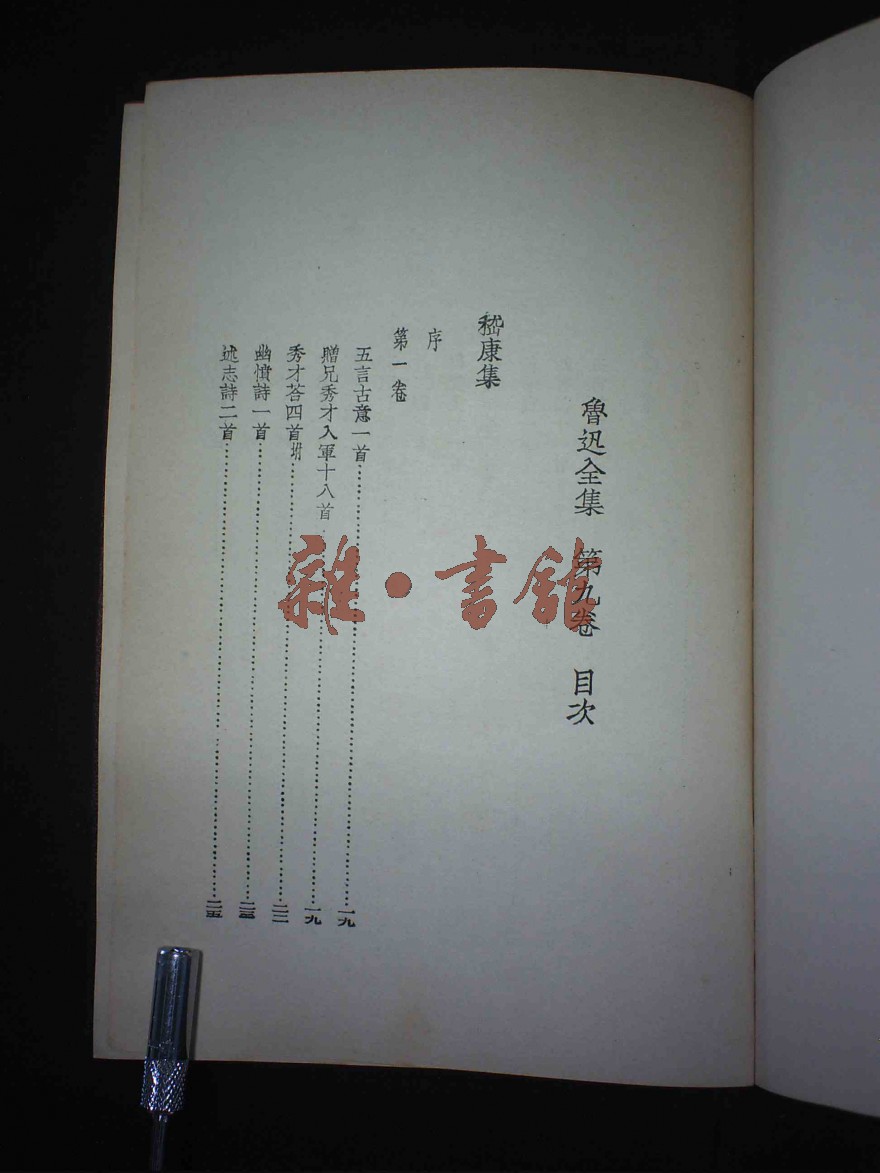 魯迅全集　第九卷　目次
嵇康集
序
第一卷
五言古意一首……一九
贈兄秀才入軍十八首……一九
秀才荅四首坿……二二
幽憤詩一首……二三
述志詩二首……二五
雜·書館